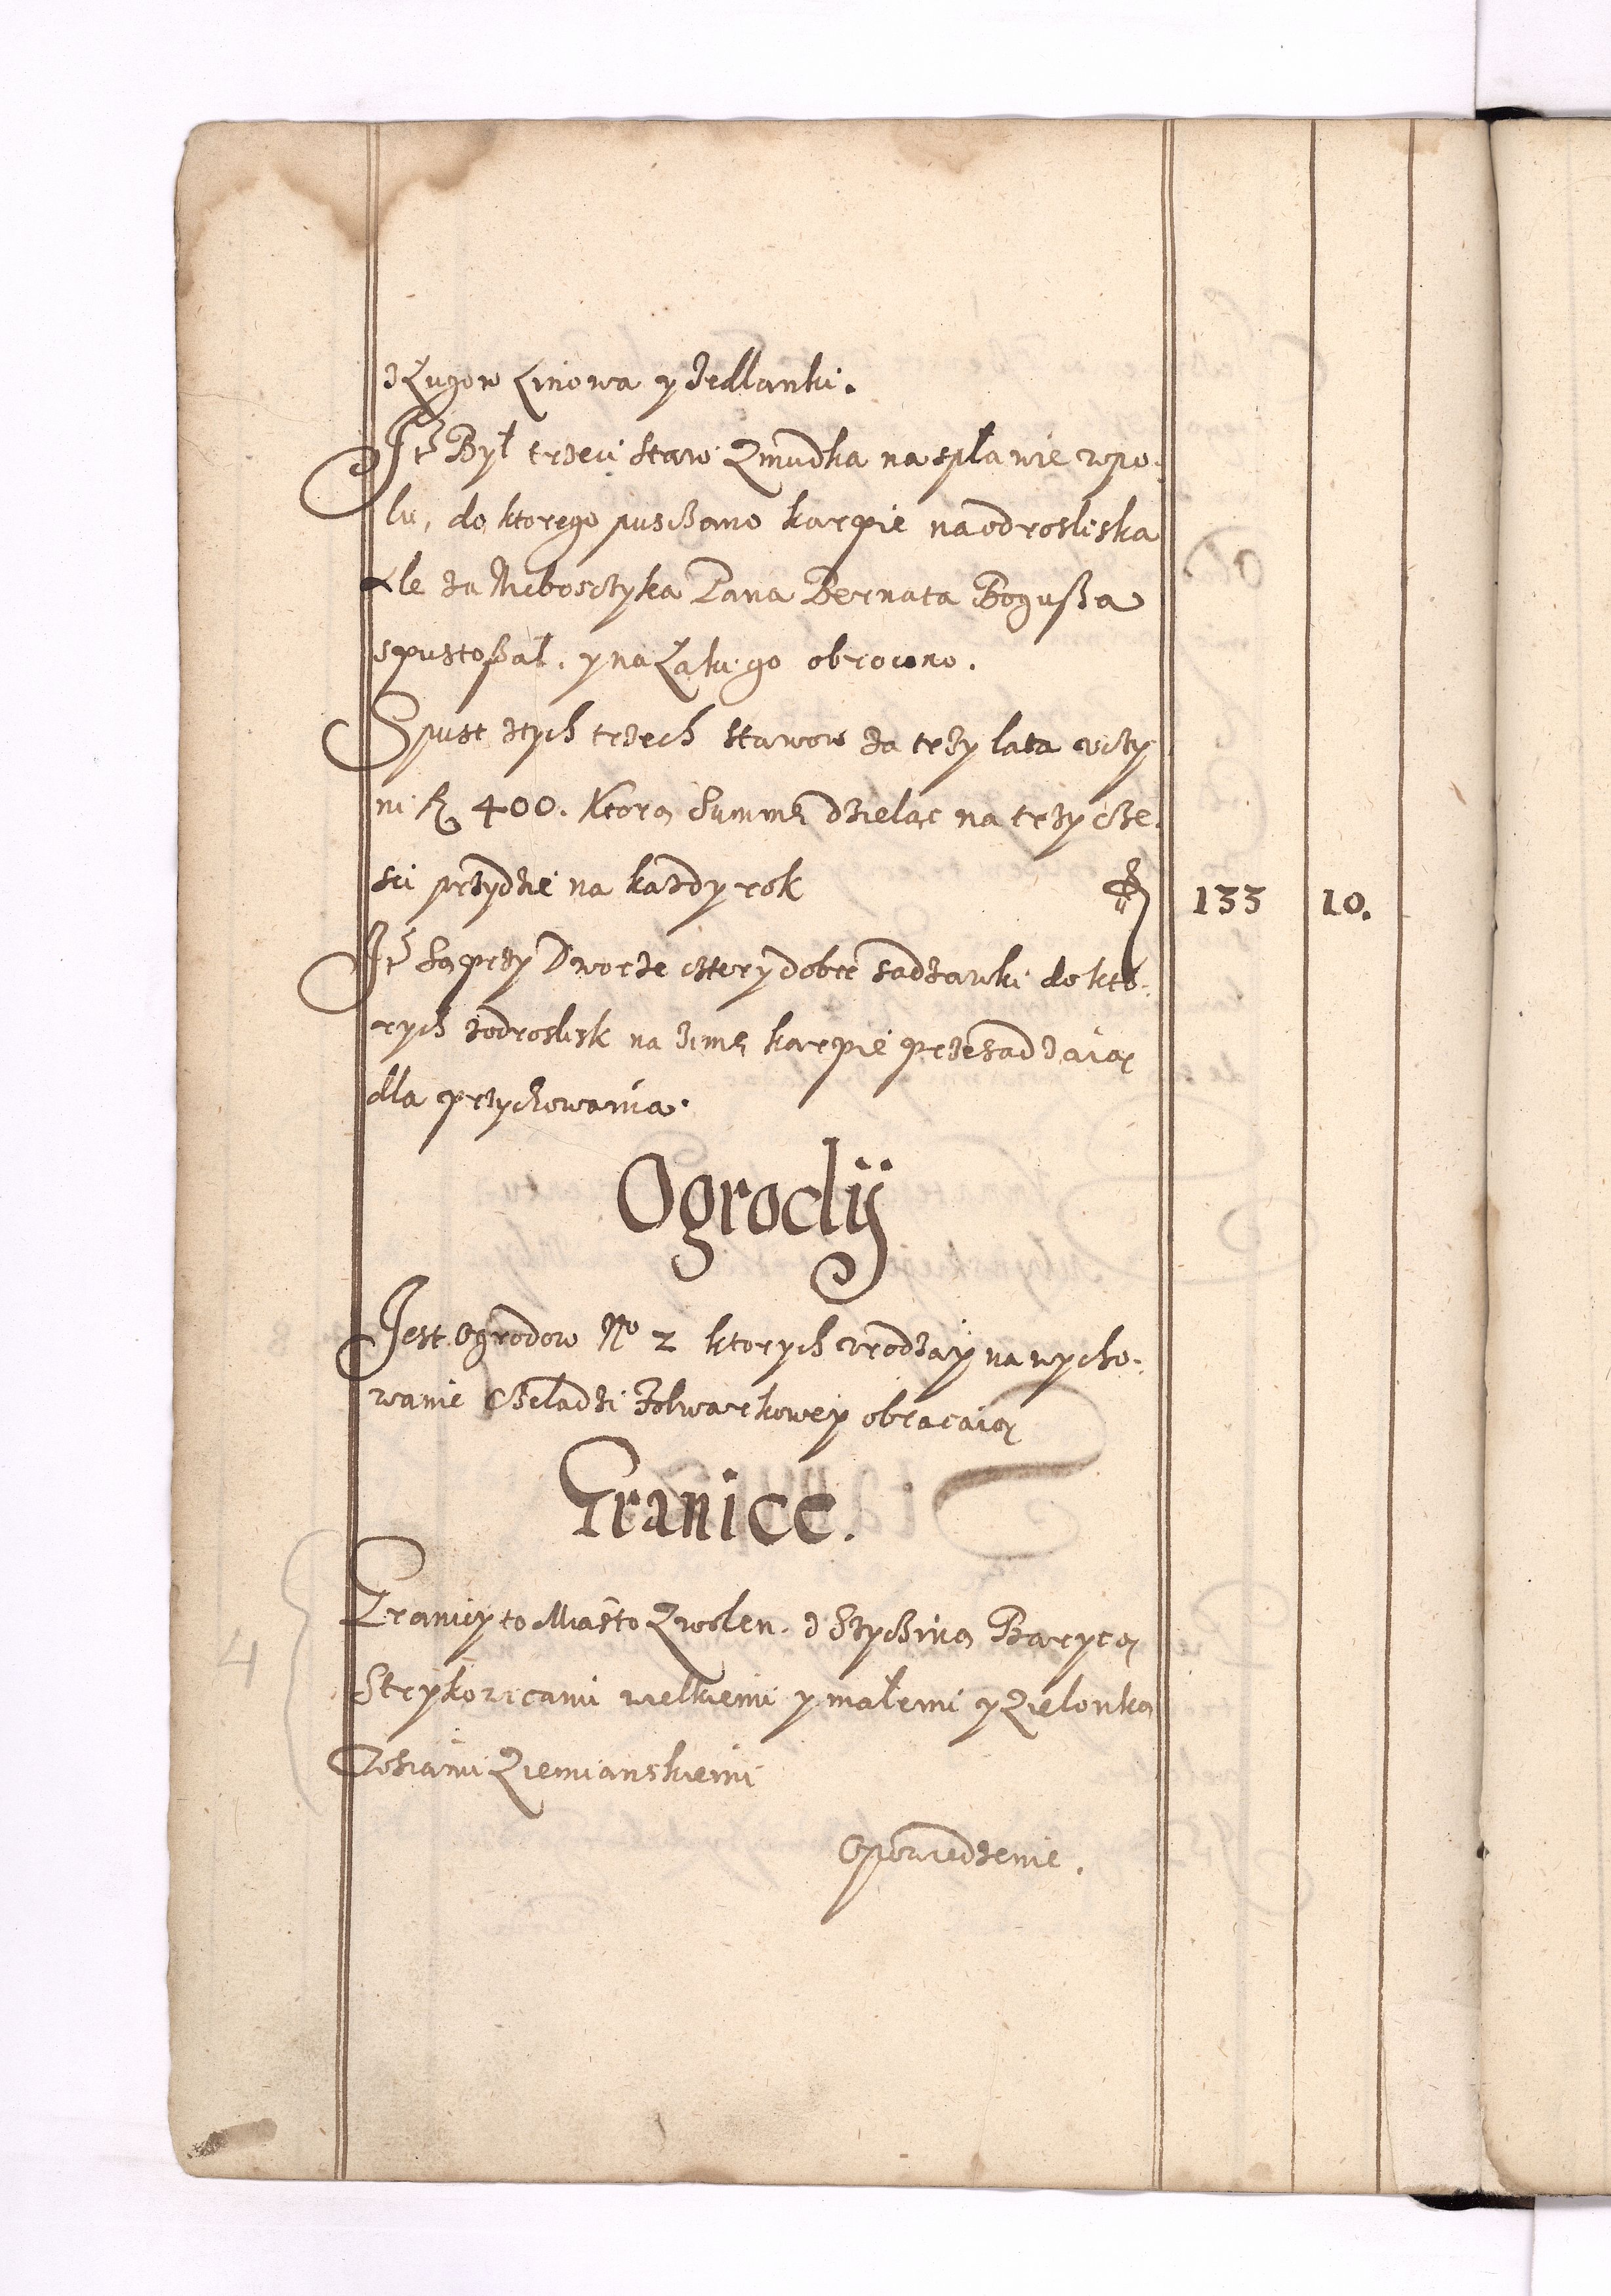 z Ługow Linowa y Jedlanki.
Itē Był trzeci staw Zmudka na spławie w po-
lu, do ktorego pusczano karpie na odrosliska
Ale za Niebosczyka Pana Bernata Bogusza
spustoszał. y na Łąkę go obrocono.
Spust z tych trzech stawow za trzy lata uczy
ni fl 400. Ktorą Summę dzieląc na trzy cze-
sci przydzie na kazdy rok fl 133 10.
Itē Są przy Dworze cztery dobre sadzawki do kto-
rych z odroslisk na zimę karpie przesadzaią
dla przychowania.
Ogrody
Jest Ogrodow No 2 ktorych urodzay na wycho-
wanie Czeladzi Folwarkowey obracaią
Granice.
Graniczy to Miasto Zwolen. z Sczycziną Barycą
Strykowicami wielkiemi y małemi y Zielonką
Wsiami Ziemianskiemi
Opowiedzenie.
4